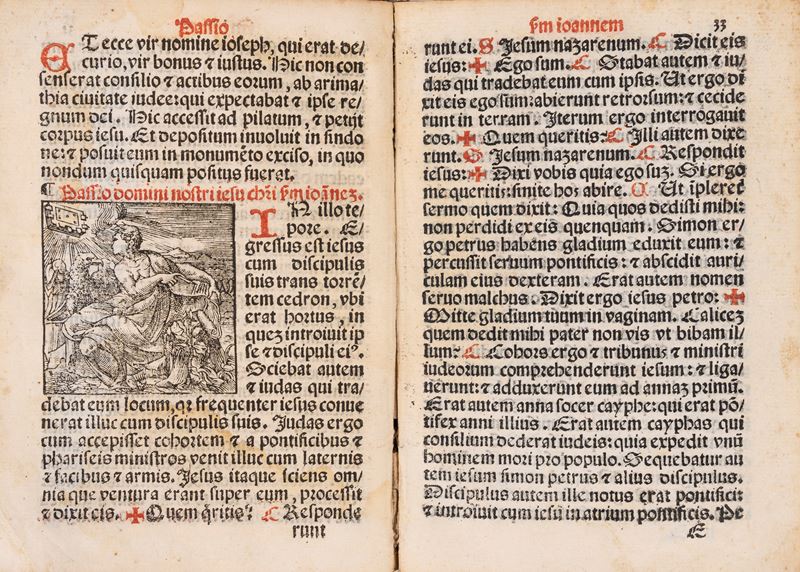 Passio
ET ecce vir nomine ioseph, qui erat de/
curio, vir bonus & iustus. Hic non con
senserat consilio & actibus eorum, ab arima/
thia ciuitate iudee: qui expectabat & ipse re/
gnum dei. Hic accessit ad pilatum, & petijt
corpus iesu. Et depositum inuoluit in sindo
ne: & posuit eum in monumēto exciso, in quo
nondum quisquam positus fuerat.
¶ Passio domini nostri iesu chr̄i s̄m ioānez.
IN illo tē
pore. E/
gressus est iesus
cum discipulis
suis trans torrē/
tem cedron, vbi
erat hortus, in
quez introiuit ip
se & discipuli eiꝰ.
Sciebat autem
& iudas qui tra/
debat eum locum, qꝛ frequenter iesus conue
nerat illuc cum discipulis suis. Iudas ergo
cum accepisset cohortem & a pontificibus &
phariseis ministros venit illuc cum laternis
& facibus & armis. Iesus itaque sciens om/
nia que ventura erant super eum, processit
& dixit eis. ✠ Quem q̄ritis? C Responde
runt
s̄m ioannem 33
runt ei. S Iesum nazarenum. C Dicit eis
iesus: ✠ Ego sum. C Stabat autem & iu/
das qui tradebat eum cum ipsis. Ut ergo di
xit eis ego sum: abierunt retrorsum: & cecide
runt in terram. Iterum ergo interrogauit
eos. ✠ Quem queritis: C Illi autem dixe
runt. S Iesum nazarenum. C Respondit
iesus: ✠ Dixi vobis quia ego suz. Si ergo
me queritis: sinite hos abire. C Ut īpleret̄
sermo quem dixit: Quia quos dedisti mihi:
non perdidi ex eis quenquam. Simon er/
go petrus habēns gladium eduxit eum: &
percussit seruum pontificis: & abscidit auri/
culam eius dexteram. Erat autem nomen
seruo malchus. Dixit ergo iesus petro: ✠
Mitte gladium tuum in vaginam. Calicez
quem dedit mihi pater non vis vt bibam il/
lum? C Cohors ergo & tribunus & ministri
iudeorum comprehenderunt iesum: & liga/
uerunt: & adduxerunt eum ad annaz primū.
Erat autem anna socer cayphe: qui erat pō/
tifex anni illius. Erat autem cayphas qui
consilium dederat iudeis: quia expedit vnū
hominem mori pro populo. Sequebatur au
tem iesum simon petrus & alius discipulus.
Discipulus autem ille notus erat pontifici:
& introiuit cum iesu in atrium pontificis. Pe
E